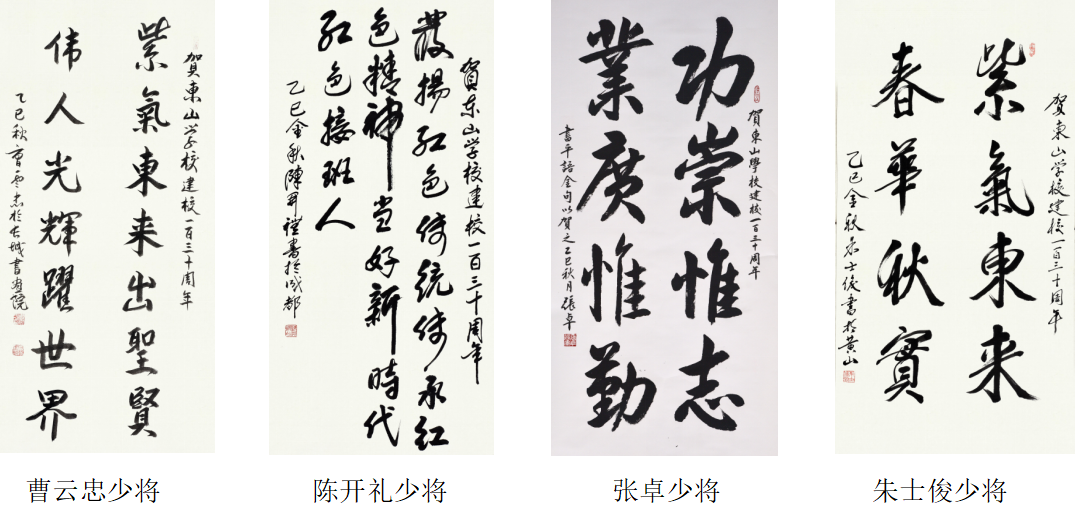 賀東山学校建校一百三十周年
紫氣東来出聖賢
伟人光輝躍世界
乙巳秋曹云忠於长城書画院
賀东山学校建校一百三十周年
發揚红色传统传承红
色精神当好新時代
红色接班人
乙巳金秋陳开禮書於成都
賀東山學校建校一百三十周年
功崇惟志
業廣惟勤
書平語金句以賀之乙巳秋月張卓
贺東山学校建校一百三十周年
紫氣東来
春華秋實
乙巳金秋朱士俊書於黄山
曹云忠少将
陈开礼少将
张卓少将
朱士俊少将